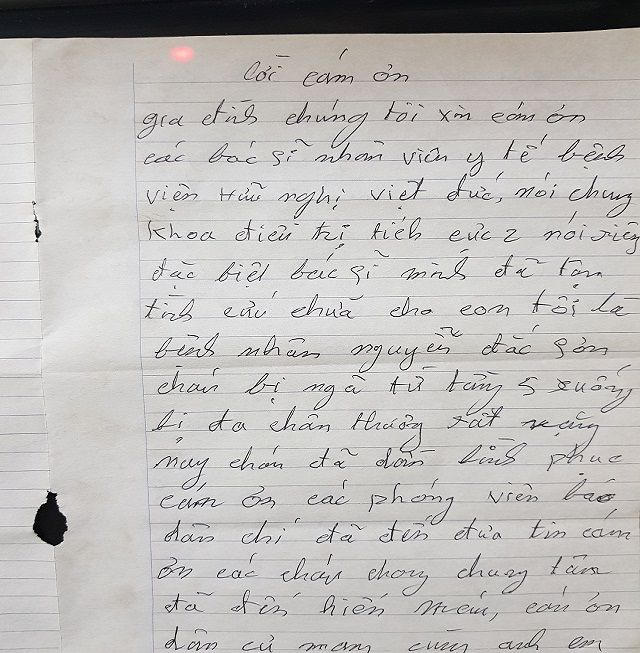 lời cảm ơn
gia đình chúng tôi xin cảm ơn
các bác sĩ nhân viên y tế bệnh
viện Hữu nghị việt đức, nói chung
khoa điều trị tích cực 2 nói riêng
đặc biệt bác sĩ minh đã tận
tình cứu chữa cho con tôi là
bệnh nhân nguyễn đắc sơn
cháu bị ngã từ tầng 5 xuống
bị đa chấn thương rất nặng
nay cháu đã dần bình phục
cảm ơn các phóng viên báo
dân chí đã đến đưa tin cảm
ơn các cháu trong tâm
đã đến hiến máu, cảm ơn
dân cư mạng cùng anh em